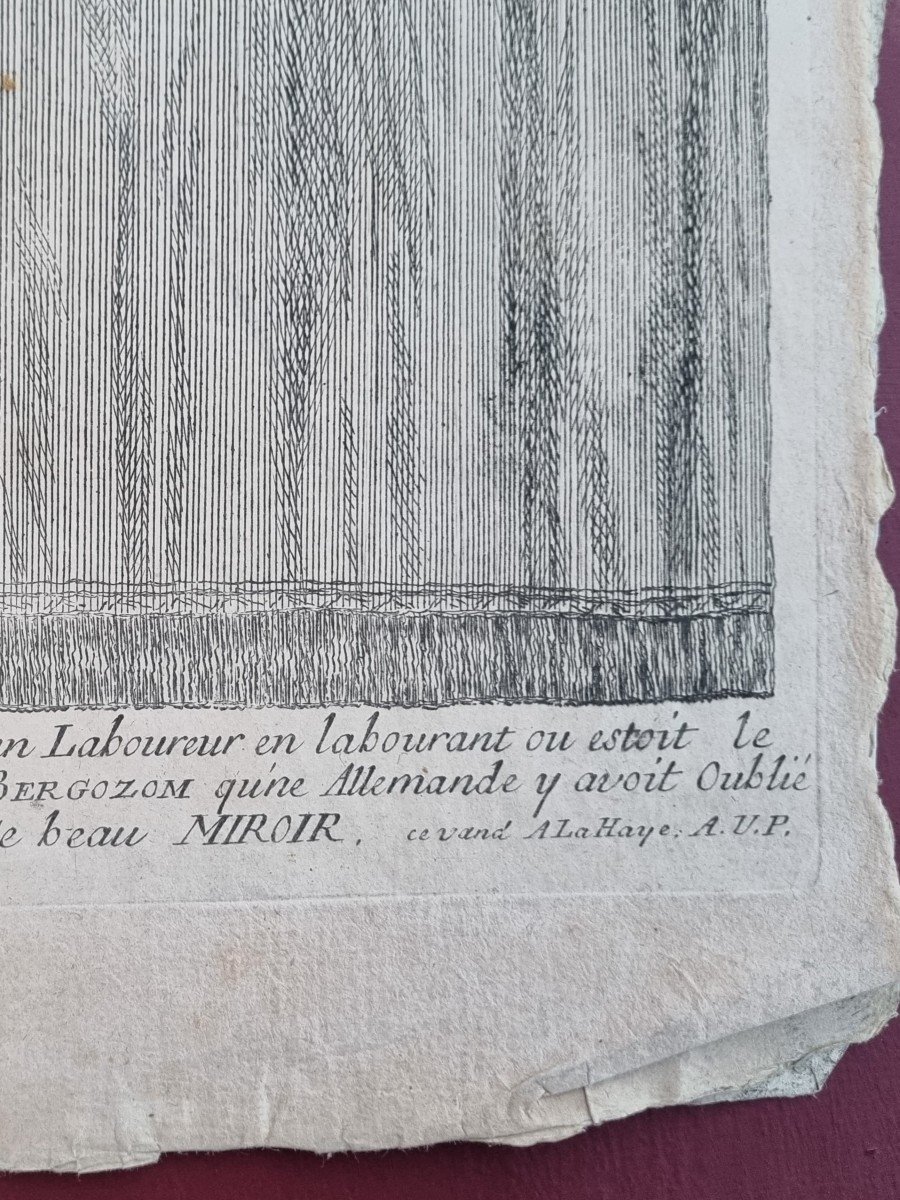 un Laboureur en labourant ou estoit le
BERGOZOM qu'ne Allemande y avoit Oublié
le beau MIROIR. ce vand A La Haye. A. U. P.